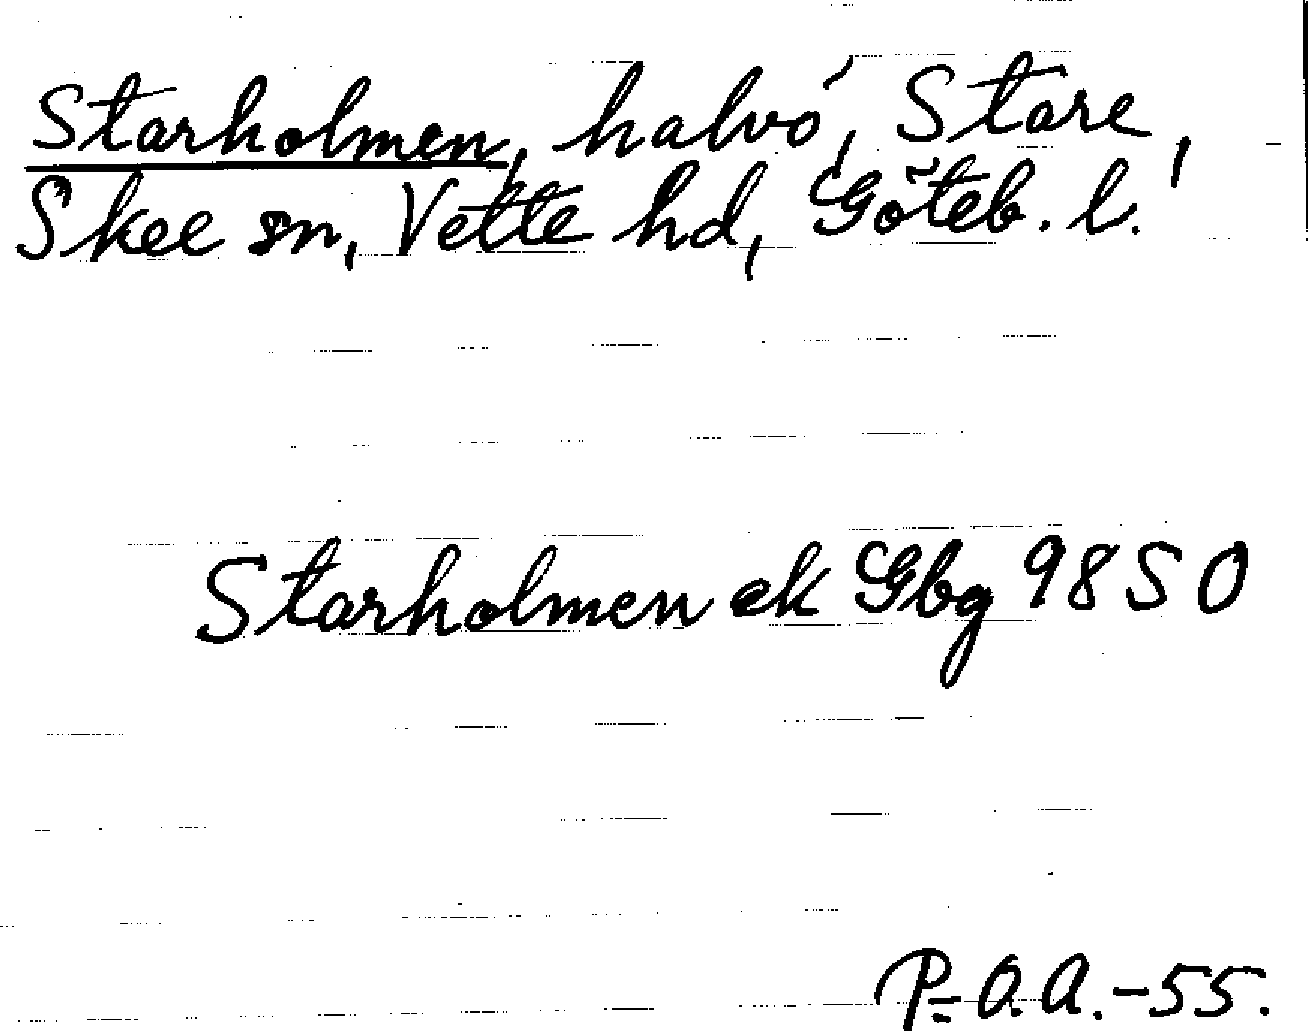 Starholmen, halvö, Stare,
Skee sn, Vette hd, Göteb. l.
Starholmen ek Gbg 9850
P.-O.A.-55.